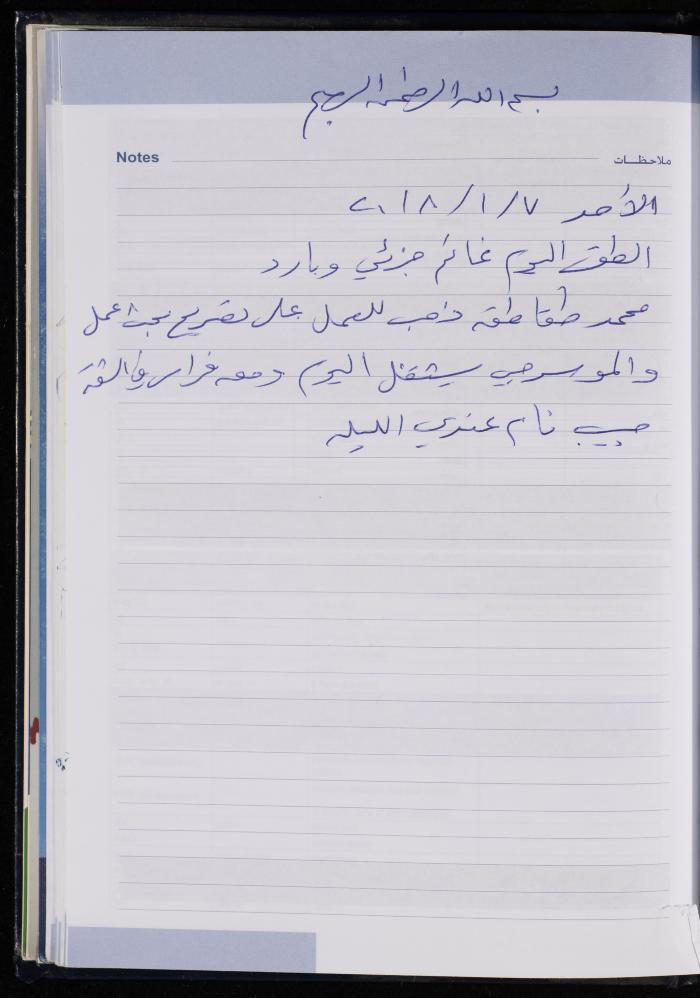 بسم الله الرحمن الرحيم
Notes
ملاحظات
الأحد ٧/١/٢٠١٨
الطقس اليوم غائم جزئي وبارد
محمد طقاطقه ذهب للعمل على تصريح بحث عمل
والموسرجي سيشتغل اليوم ومعه فراس
حبيب نام عندي الليله